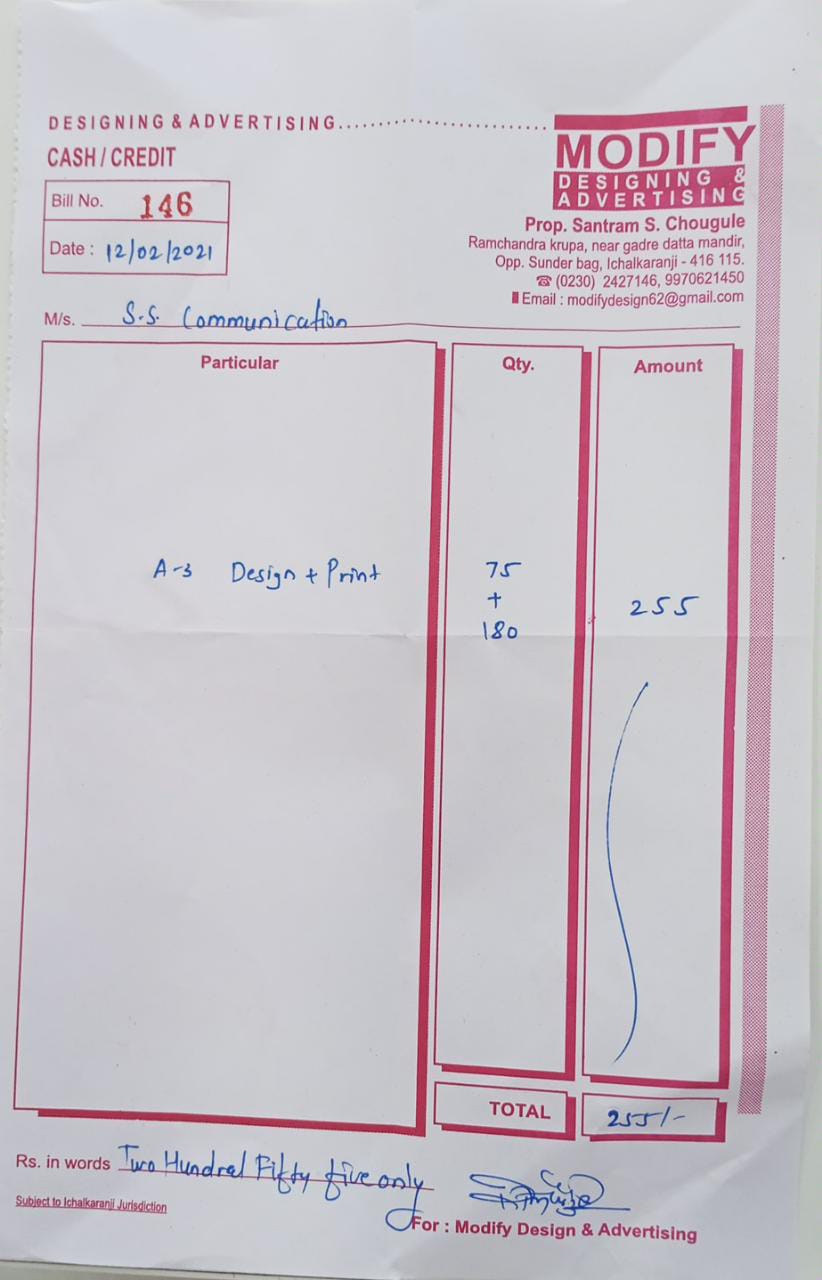 DESIGNING & ADVERTISING
CASH / CREDIT
MODIFY
DESIGNING &
ADVERTISING
Bill No. 146
Date : 12/02/2021
Prop. Santram S. Chougule
Ramchandra krupa, near gadre datta mandir,
Opp. Sunder bag, Ichalkaranji - 416 115.
☎ (0230) 2427146, 9970621450
Email : modifydesign62@gmail.com
M/s. S.S. Communication
Particular Qty. Amount
A-3 Design + Print 75
+ 255
180
TOTAL 255/-
Rs. in words Two Hundred Fifty five only
Subject to Ichalkaranji Jurisdiction
For : Modify Design & Advertising